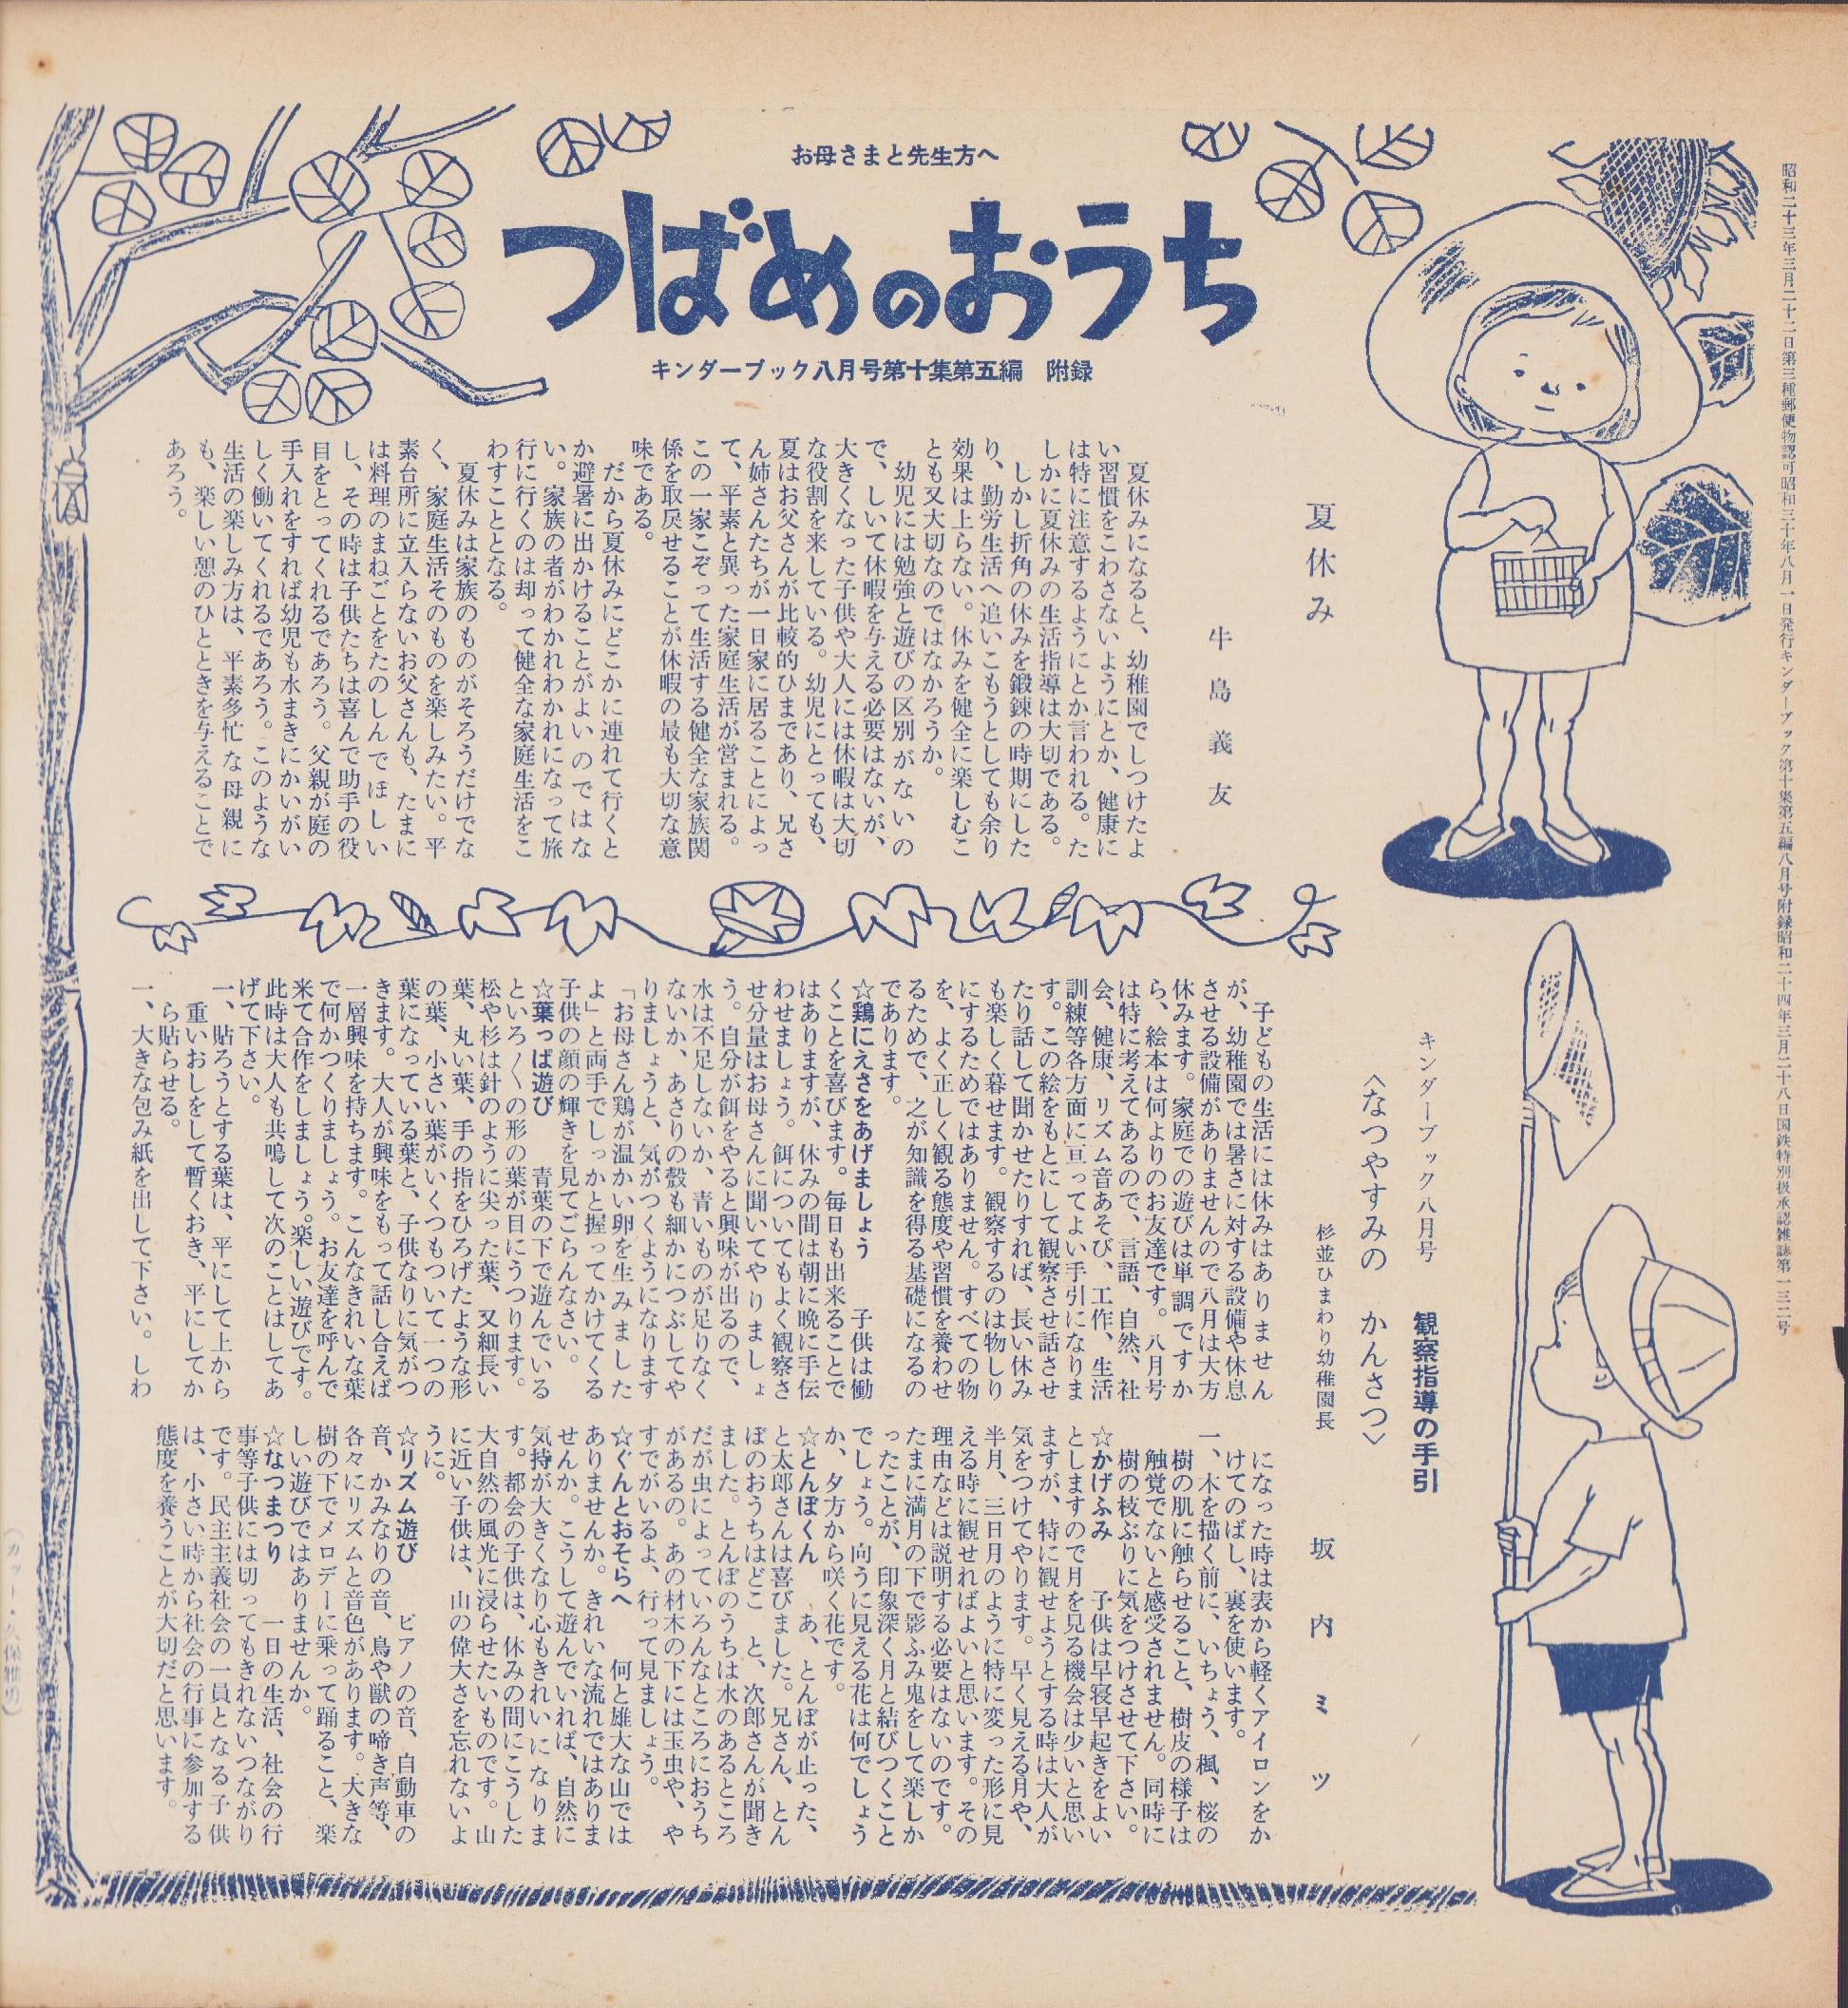 昭和二十三年三月二十二日第三種郵便物認可昭和三十年八月一日発行キンダーブック第十集第五編八月号附録昭和二十四年三月二十八日国鉄特別扱承認雑誌第一三二号
お母さまと先生方へ
つばめのおうち
キンダーブック八月号第十集第五編　附録
夏休み
牛島義友
夏休みになると、幼稚園でしつけたよ
い習慣をこわさないようにとか、健康に
は特に注意するようにとか言われる。た
しかに夏休みの生活指導は大切である。
しかし折角の休みを鍛錬の時期にした
り、勤労生活へ追いこもうとしても余り
効果は上らない。休みを健全に楽しむこ
とも又大切なのではなかろうか。
幼児には勉強と遊びの区別がないの
で、しいて休暇を与える必要はないが、
大きくなった子供や大人には休暇は大切
な役割を来している。幼児にとっても、
夏はお父さんが比較的ひまであり、兄さ
ん姉さんたちが一日家に居ることによっ
て、平素と異った家庭生活が営まれる。
この一家こぞって生活する健全な家族関
係を取戻せることが休暇の最も大切な意
味である。
だから夏休みにどこかに連れて行くと
か避暑に出かけることがよいのではな
い。家族の者がわかれわかれになって旅
行に行くのは却って健全な家庭生活をこ
わすこととなる。
夏休みは家族のものがそろうだけでな
く、家庭生活そのものを楽しみたい。平
素台所に立入らないお父さんも、たまに
は料理のまねごとをたのしんでほしい
し、その時は子供たちは喜んで助手の役
目をとってくれるであろう。父親が庭の
手入れをすれば幼児も水まきにかいがい
しく働いてくれるであろう。このような
生活の楽しみ方は、平素多忙な母親に
も、楽しい憩のひとときを与えることで
あろう。
キンダーブック八月号　観察指導の手引
〈なつやすみの　かんさつ〉
杉並ひまわり幼稚園長　坂内ミツ
子どもの生活には休みはありません
が、幼稚園では暑さに対する設備や休息
させる設備がありませんので八月は大方
休みます。家庭での遊びは単調ですか
ら、絵本は何よりのお友達です。八月号
は特に考えてあるので、言語、自然、社
会、健康、リズム音あそび、工作、生活
訓練等各方面に亘ってよい手引になりま
す。この絵をもとにして観察させ話させ
たり話して聞かせたりすれば、長い休み
も楽しく暮せます。観察するのは物しり
にするためではありません。すべての物
を、よく正しく観る態度や習慣を養わせ
るためで、之が知識を得る基礎になるの
であります。
☆鶏にえさをあげましょう　子供は働
くことを喜びます。毎日も出来ることで
はありますが、休みの間は朝に晩に手伝
わせましょう。餌についてもよく観察さ
せ分量はお母さんに聞いてやりましょ
う。自分が餌をやると興味が出るので、
水は不足しないか、青いものが足りなく
ないか、あさりの殻も細かにつぶしてや
りましょうと、気がつくようになります
「お母さん鶏が温かい卵を生みました
よ」と両手でしっかと握ってかけてくる
子供の顔の輝きを見てごらんなさい。
☆葉っぱ遊び　青葉の下で遊んでいる
といろ〱の形の葉が目にうつります。
松や杉は針のように尖った葉、又細長い
葉、丸い葉、手の指をひろげたような形
の葉、小さい葉がいくつもついて一つの
葉になっている葉と、子供なりに気がつ
きます。大人が興味をもって話し合えば
一層興味を持ちます。こんなきれいな葉
で何かつくりましょう。お友達を呼んで
来て合作をしましょう。楽しい遊びです。
此時は大人も共鳴して次のことはしてあ
げて下さい。
一、貼ろうとする葉は、平にして上から
重いおしをして暫くおき、平にしてか
ら貼らせる。
一、大きな包み紙を出して下さい。しわ
になった時は表から軽くアイロンをか
けてのばし、裏を使います。
一、木を描く前に、いちょう、楓、桜の
樹の肌に触らせること、樹皮の様子は
触覚でないと感受されません。同時に
樹の枝ぶりに気をつけさせて下さい。
☆かげふみ　子供は早寝早起きをよい
としますので月を見る機会は少いと思い
ますが、特に観せようとする時は大人が
気をつけてやります。早く見える月や、
半月、三日月のように特に変った形に見
える時に観せればよいと思います。その
理由などは説明する必要はないのです。
たまに満月の下で影ふみ鬼をして楽しか
ったことが、印象深く月と結びつくこと
でしょう。向うに見える花は何でしょう
か、夕方から咲く花です。
☆とんぼくん　あ、とんぼが止った、
と太郎さんは喜びました。兄さん、とん
ぼのおうちはどこ　と、次郎さんが聞き
ました。とんぼのうちは水のあるところ
だが虫によっていろんなところにおうち
があるの。あの材木の下には玉虫や、や
すでがいるよ、行って見ましょう。
☆ぐんとおそらへ　何と雄大な山では
ありませんか。きれいな流れではありま
せんか。こうして遊んでいれば、自然に
気持が大きくなり心もきれいになりま
す。都会の子供は、休みの間にこうした
大自然の風光に浸らせたいものです。山
に近い子供は、山の偉大さを忘れないよ
うに。
☆リズム遊び　ピアノの音、自動車の
音、かみなりの音、鳥や獣の啼き声等、
各々にリズムと音色があります。大きな
樹の下でメロデーに乗って踊ること、楽
しい遊びではありませんか。
☆なつまつり　一日の生活、社会の行
事等子供には切ってもきれないつながり
です。民主主義社会の一員となる子供
は、小さい時から社会の行事に参加する
態度を養うことが大切だと思います。